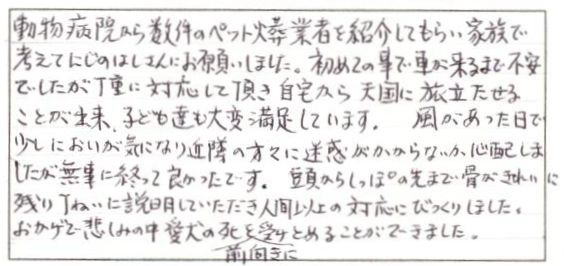 動物病院から数件のペット火葬業者を紹介してもらい家族で
考えてにじのはしさんにお願いしました。初めての事で車が来るまで不安
でしたが丁重に対応して頂き自宅から天国に旅立たせる
ことが出来、子ども達も大変満足しています。 風があった日で
少しにおいが気になり近隣の方々に迷惑がかからないか心配しま
したが無事に終って良かったです。 頭からしっぽの先まで骨がきれいに
残りていねいに説明していただき人間以上の対応にびっくりしました。
おかげで悲しみの中愛犬の死を受けとめることができました。
前向きに